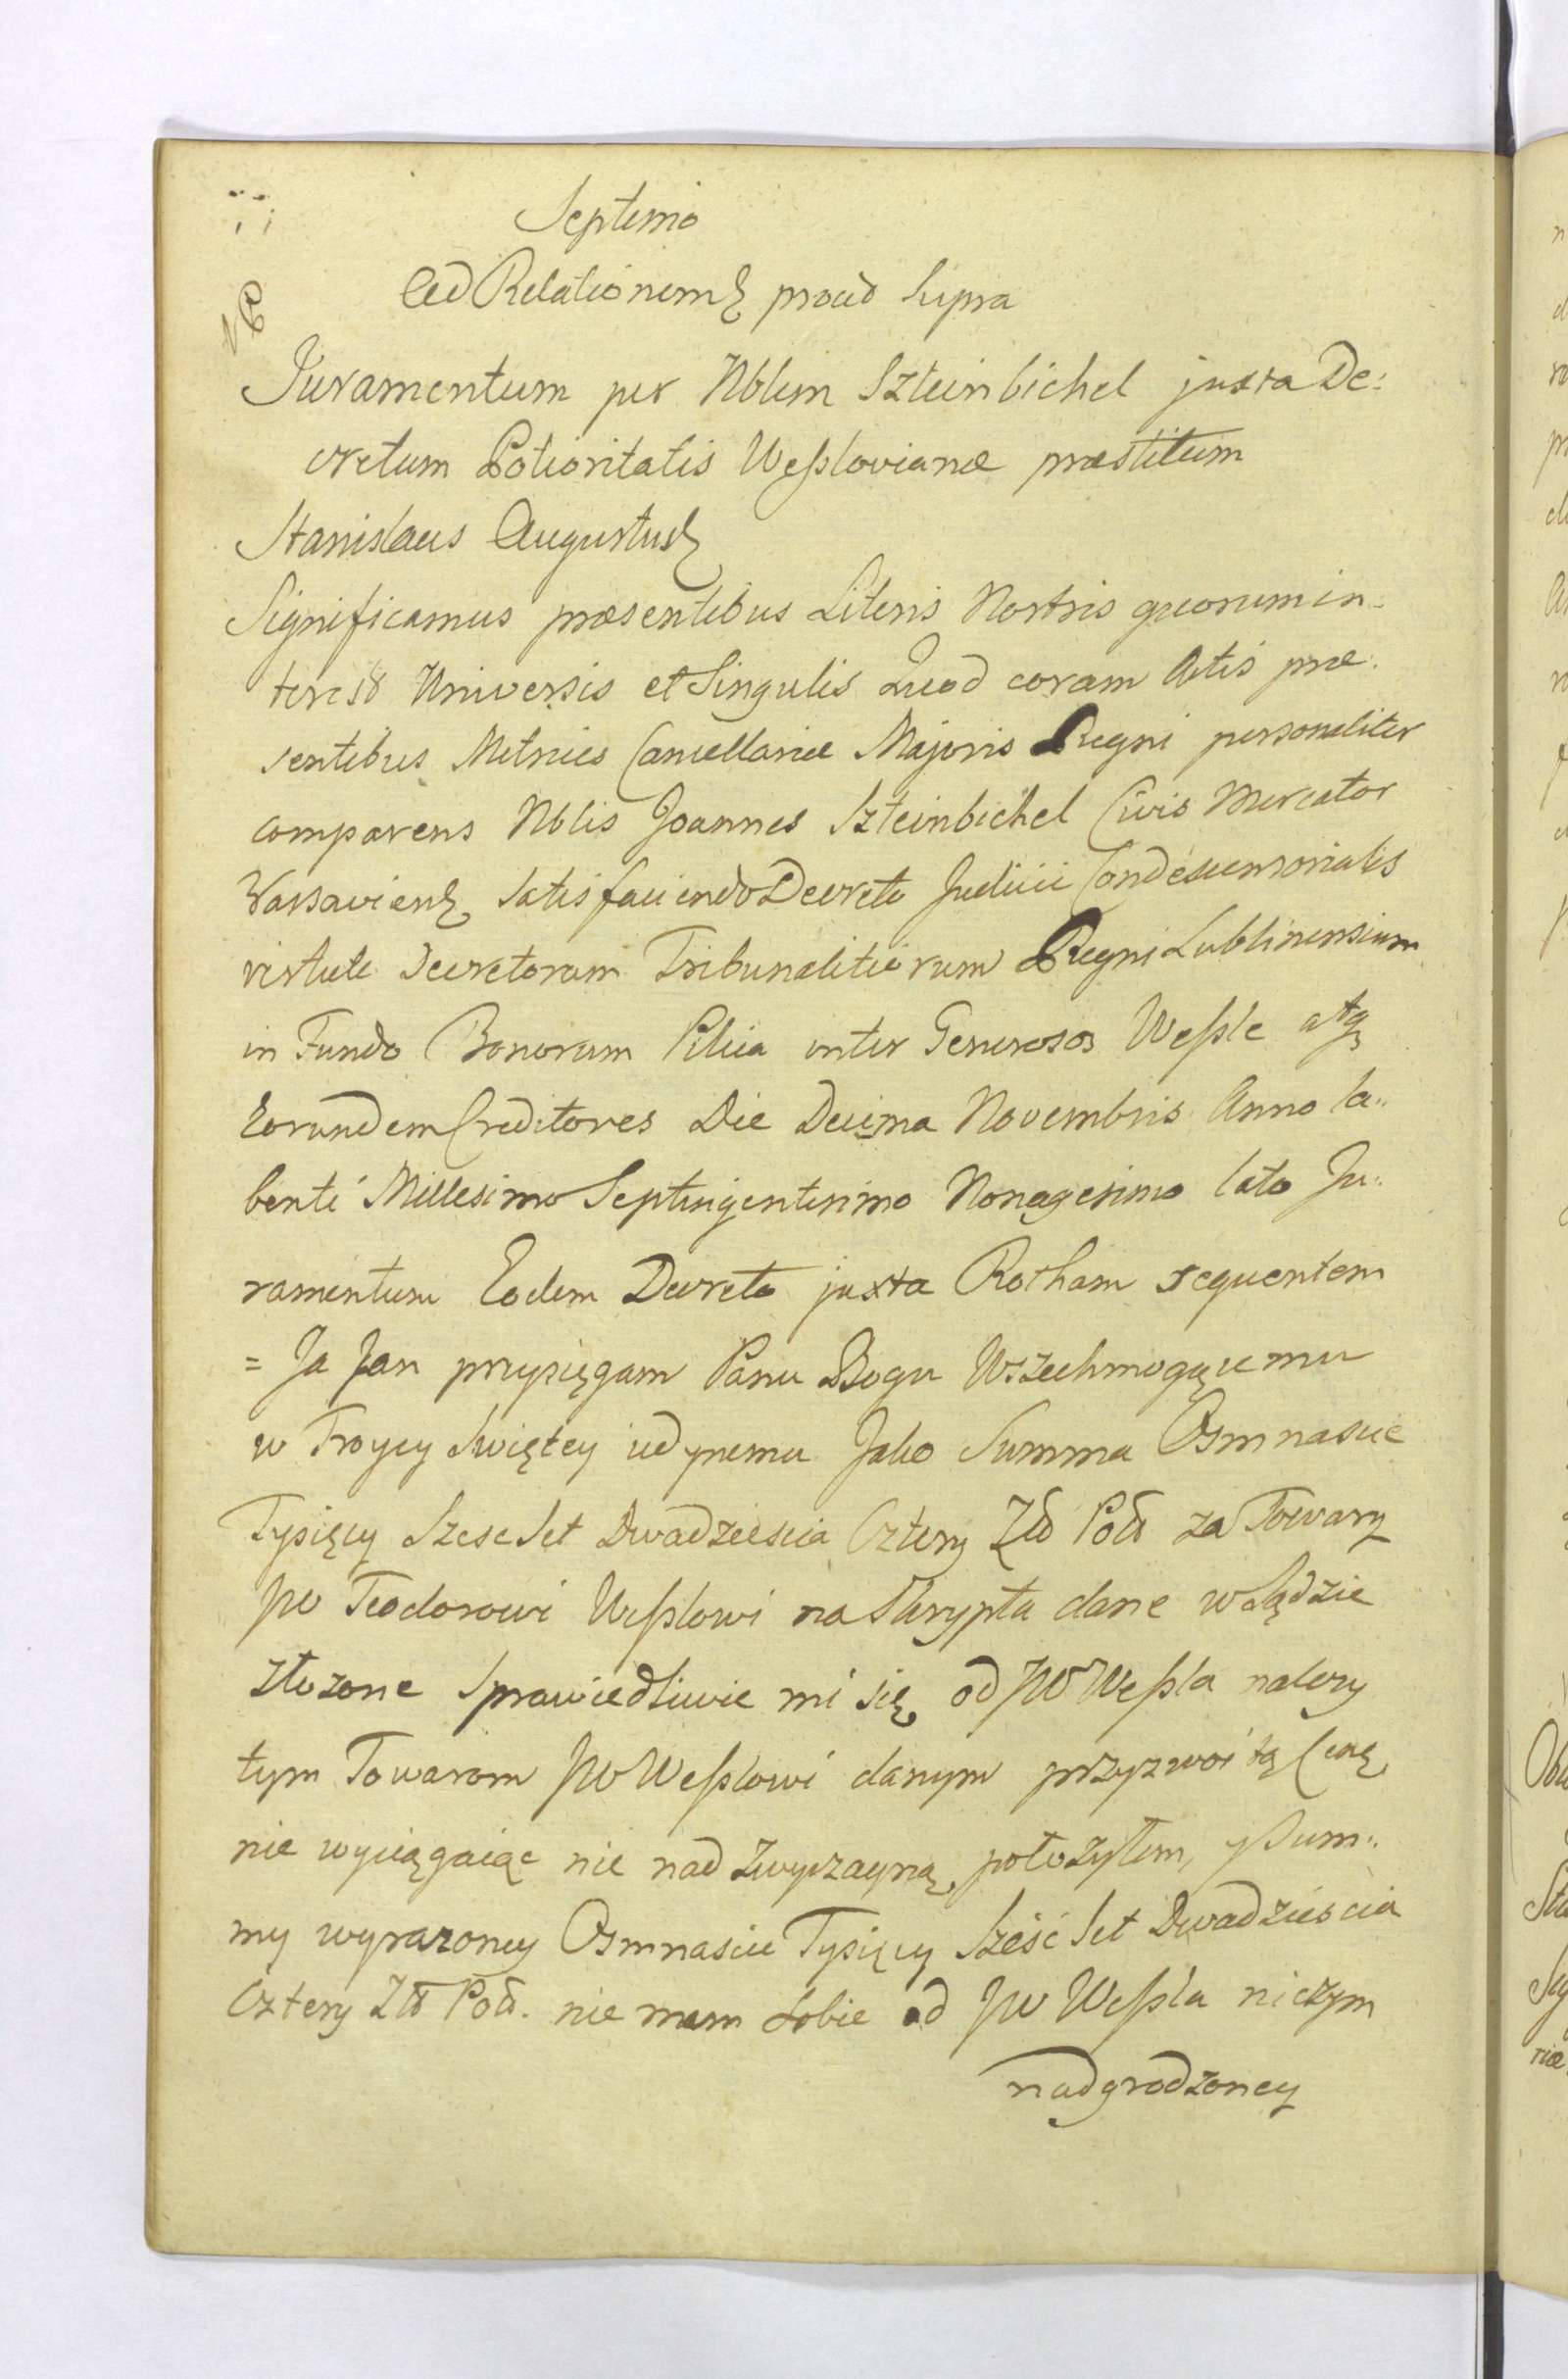 Septimo
Ad Relationem prout supra
Juramentum per Nblem Szteinbichel juxta De:
cretum Potioritatis Wesslovianæ præstitum
Stanislaus Augustus
Significamus præsentibus Literis Nostris quorum in:
terest Universis et Singulis Quod coram Actis præ:
sentibus Metrices Cancellariæ Majoris Regni personaliter
comparens Nblis Joannes Szteinbichel Civis Mercator
Varsavien satisfaciendo Decreto Judicii Condescensorialis
virtute Decretorum Tribunalitiorum Regni Lublinensium
in Fundo Bonorum Pilica inter Generosos Wessle atq
Eorundem Creditores Die Decima Novembris Anno la:
benti Millesimo Septingentesimo Nonagesimo lato Ju:
ramentum Eodem Decreto juxta Rotham sequentem
= Ja Jan przysięgam Panu Bogu Wszechmogącemu
w Troycy Swiętey iedynemu Jako Summa Osmnascie
Tysięcy Szesc Set Dwadziescia Cztery Zło Poł za Towary
JW Teodorowi Wesslowi na Skrypta dane w Sądzie
złozone Sprawiedliwie mi się od JW Wessla nalezy
tym Towarom JW Wesslowi danym przyzwoitą Cenę
nie wyciągaiąc nie nad zwyczayną połozyłem, y Sum:
my wyrazoney Osmnascie Tysięcy Sześć Set Dwadziescia
Cztery Zło Poł. nie mam sobie od JW Wessla niczym
nadgrodzoney